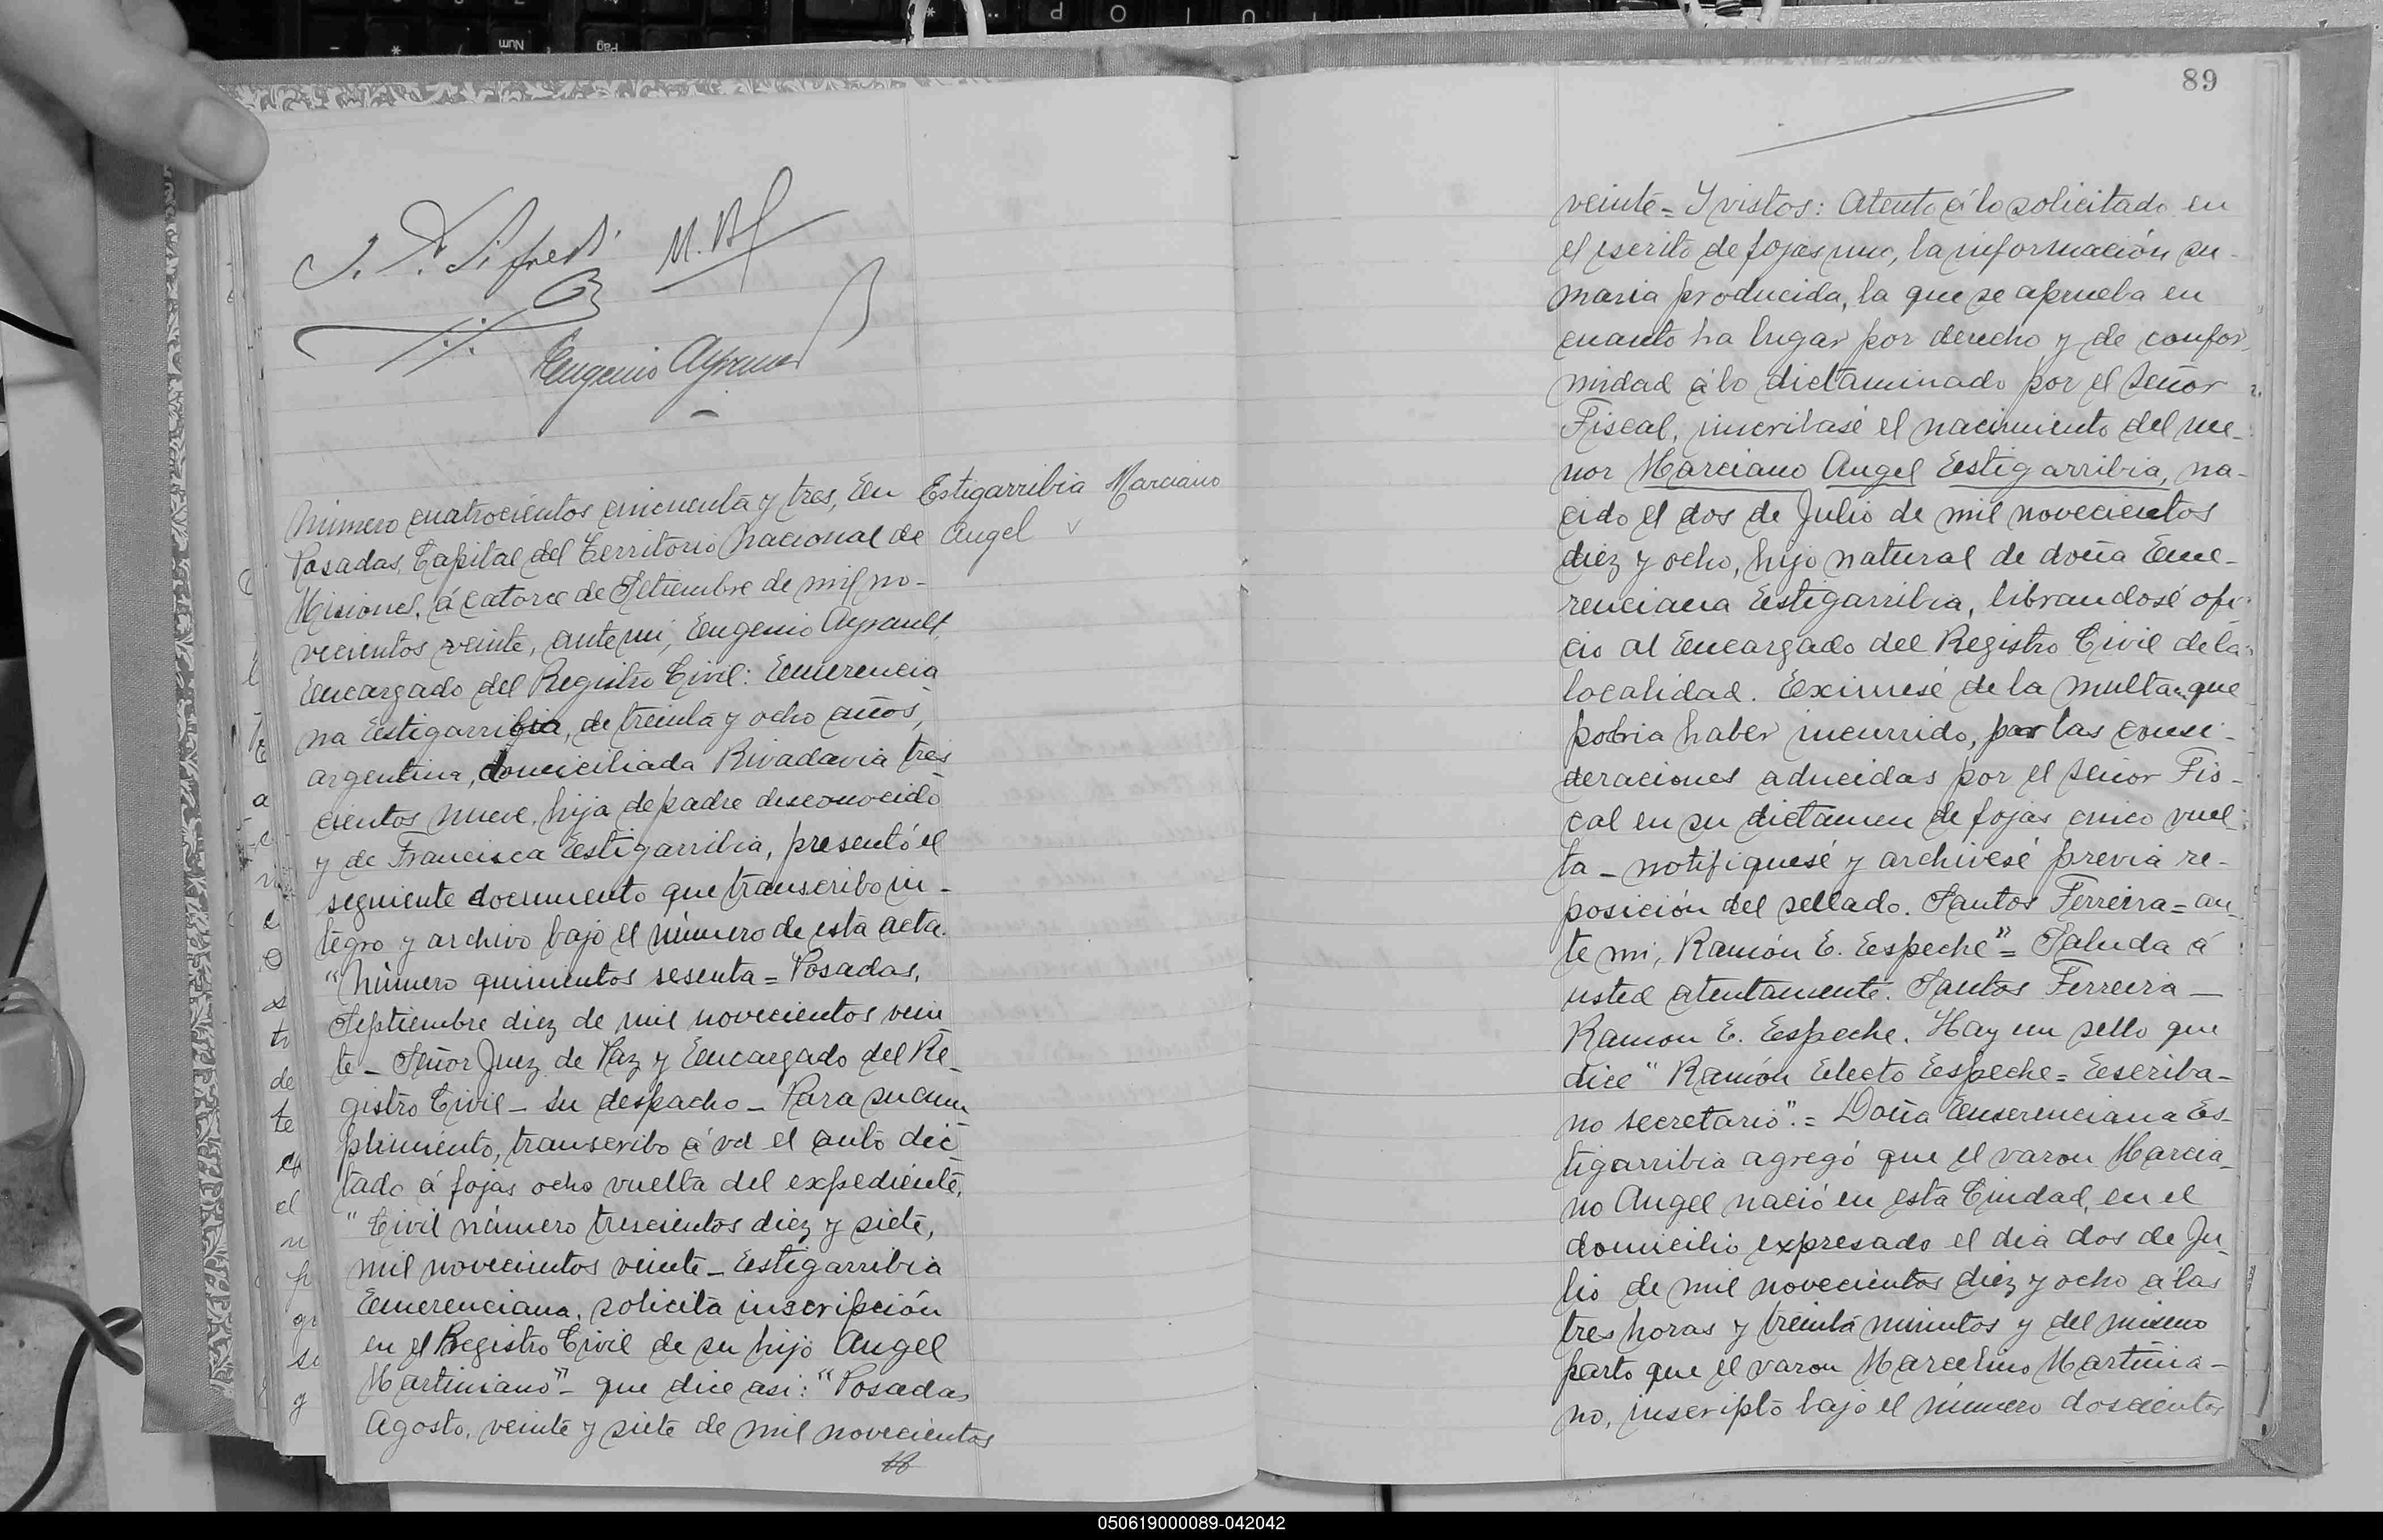 Eugenio Ayrault
Número cuatrocientos cincuenta y tres, En
Estigarribia Marciano
Angel
Posadas, Capital del Territorio Nacional de
Misiones, á catorce de Setiembre de mil no-
vecientos veinte, ante mi, Eugenio Ayrault,
Encargado del Registro Civil: Emerencia
na Estigarribia, de treinta y ocho años,
argentina, domiciliada Rivadavia tres
cientos nueve, hija de padre desconocido
y de Francisca Estigarribia, presentó el
seguiente documento que transcribo in-
tegro y archivo bajo el número de esta acta.
"Número quinientos sesenta = Posadas,
Septiembre diez de mil novecientos vein
te - Señor Juez de Paz y Encargado del Re-
gistro Civil - Su despacho - Para su cum
plimiento, transcribo á vd el auto dic-
tado á fojas ocho vuelta del expediente,
"Civil número trescientos diez y siete,
mil novecientos veinte - Estigarribia
Emerenciana, solicita inscripción
en el Registro Civil de su hijo Angel
Martiniano" - que dice asi: "Posadas
Agosto, veinte y siete de mil novecientos
89
veinte = Y vistos: Atento á lo solicitado en
el escrito de fojas uno, la información su-
maria producida, la que se aprueba en
cuanto ha lugar por derecho y de confor
midad á lo dictaminado por el Señor
Fiscal, inscribasé el nacimiento del me-
nor Marciano Angel Estigarribia, na-
cido el dos de Julio de mil novecientos
diez y ocho, hijo natural de doña Eme-
renciana Estigarribia, librandosé ofi-
cio al Encargado del Registro Civil de la
localidad. Eximesé de la multa que
podria haber incurrido, por las consi-
deraciones aducidas por el Señor Fis-
cal en su dictamen de fojas cinco vuel-
ta - notifiquesé y archivesé previa re-
posición del sellado. Santos Ferreira = an-
te mi, Ramón E. Espeche" = Saluda á
usted atentamente. Santos Ferreira -
Ramon E. Espeche. Hay un sello que
dice "Ramón Electo Espeche = Escriba-
no secretario". = Doña Emerenciana Es-
tigarribia agregó que el varon Marcia-
no Angel nació en esta Ciudad, en el
domicilio expresado el dia dos de Ju-
lio de mil novecientos diez y ocho á las
tres horas y treinta minutos y del mismo
parto que el varon Marcelino Martinia-
no, inscripto bajo el número doscientos
050619000089-042042